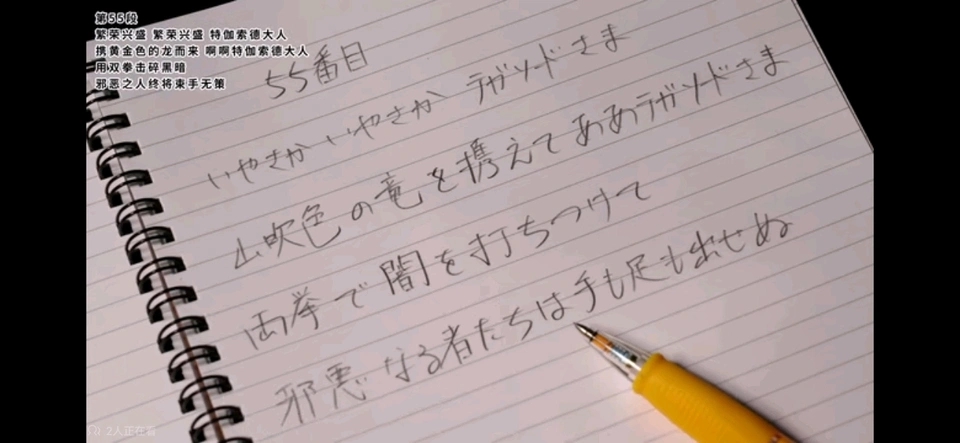 第55段
繁荣兴盛 繁荣兴盛 特伽索德大人
携黄金色的龙而来 啊啊特伽索德大人
用双拳击碎黑暗
邪恶之人终将束手无策
55番目
いやさか いやさか ラガソードさま
山吹色の竜を携えて ああラガソードさま
両拳で闇を打ちつけて
邪悪なる者たちは手も足も出せぬ
2人正在看